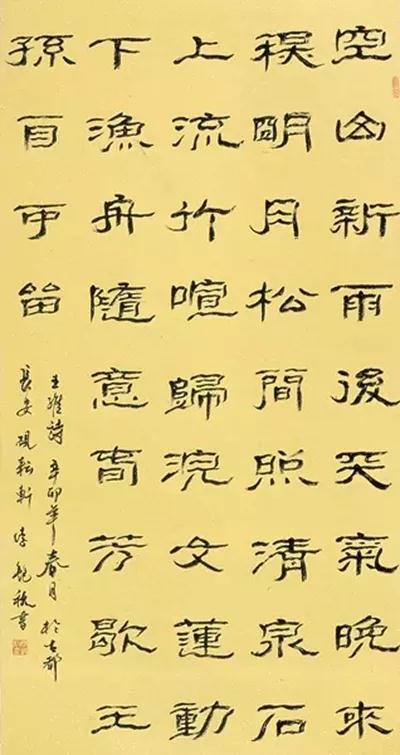 空山新雨後天氣晚來
秋明月松間照清泉石
上流竹喧歸浣女蓮動
下漁舟隨意春芳歇王
孫自可留
王維詩 辛卯年春月於古都
長安硯耘軒 書